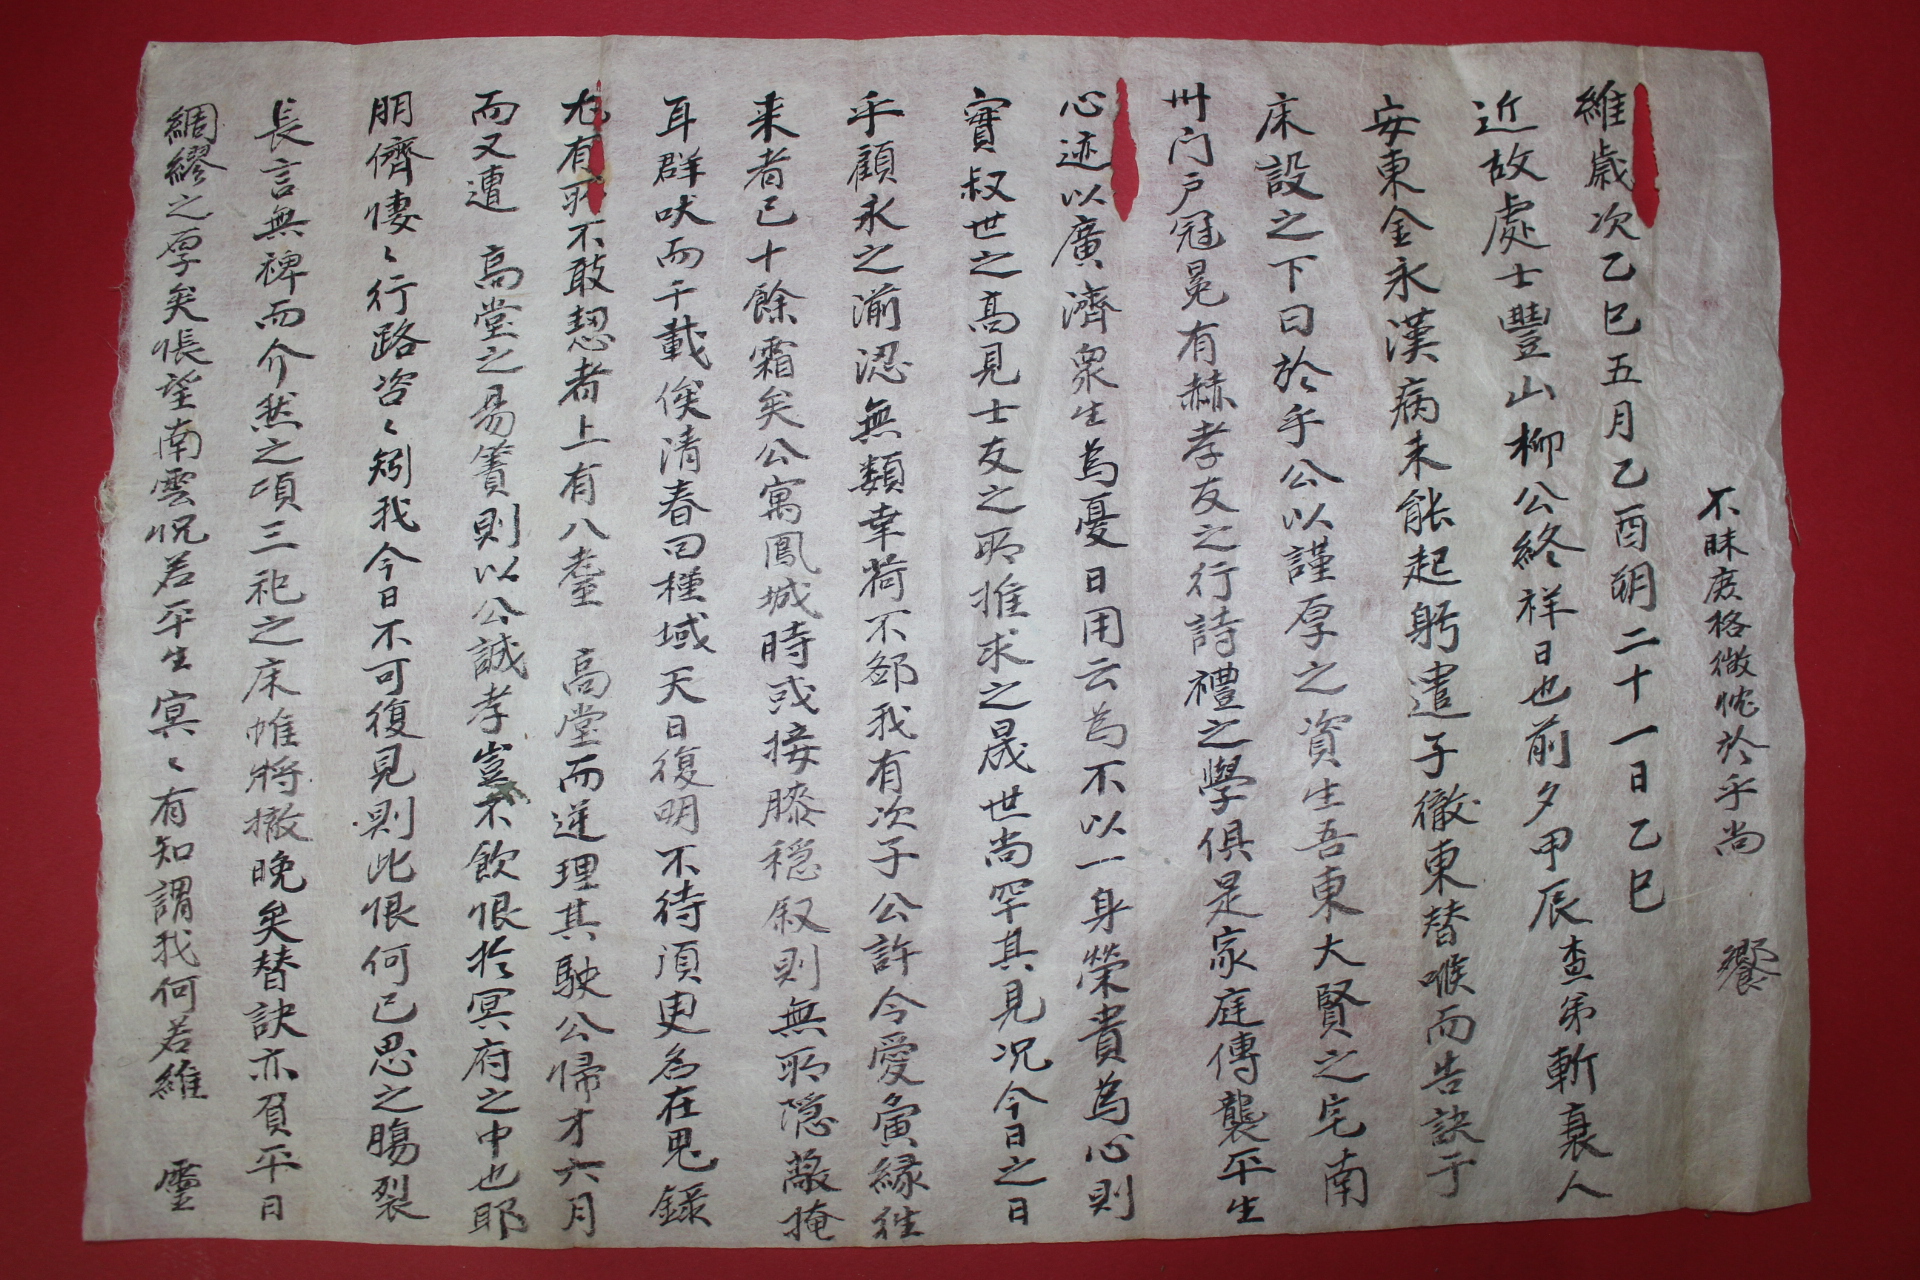 維歲次乙巳五月乙酉朔二十一日乙巳
近故處士豐山柳公終祥日也前夕甲辰查弟斬衰人
安東金永漢病未能起躬遣子徹東替喉而告訣于
床設之下曰於乎公以謹厚之資生吾東大賢之宅南
州门戶冠冕有赫孝友之行詩禮之學俱是家庭傳襲平生
心迹以廣濟衆生為憂日用云為不以一身榮貴為心則
寶叔世之高見士友之所推求之晟世尚罕其見况今日之日
乎顧永之湔涊無類幸荷不鄙我有次子公許令愛寅緣往
来者已十餘霜矣公寓鳳城時或接膝穏叙則無所隱蔽掩
耳群吠而千載俟清春回槿域天日復明不待須臾為在鬼錄
尤有所不敢恝者上有八耋 高堂而逆理其駛公歸才六月
而又遭 高堂之易簀則以公誠孝豈不飲恨於冥府之中也耶
朋儕悽〻行路咨〻矧我今日不可復見則此恨何已思之腸裂
長言無裨而介然之頃三祀之床帷將撤晚矣替訣亦負平日
綢繆之厚矣悵望南雲怳若平生冥〻有知謂我何若維 靈
不昧庶格微忱於乎尚 饗